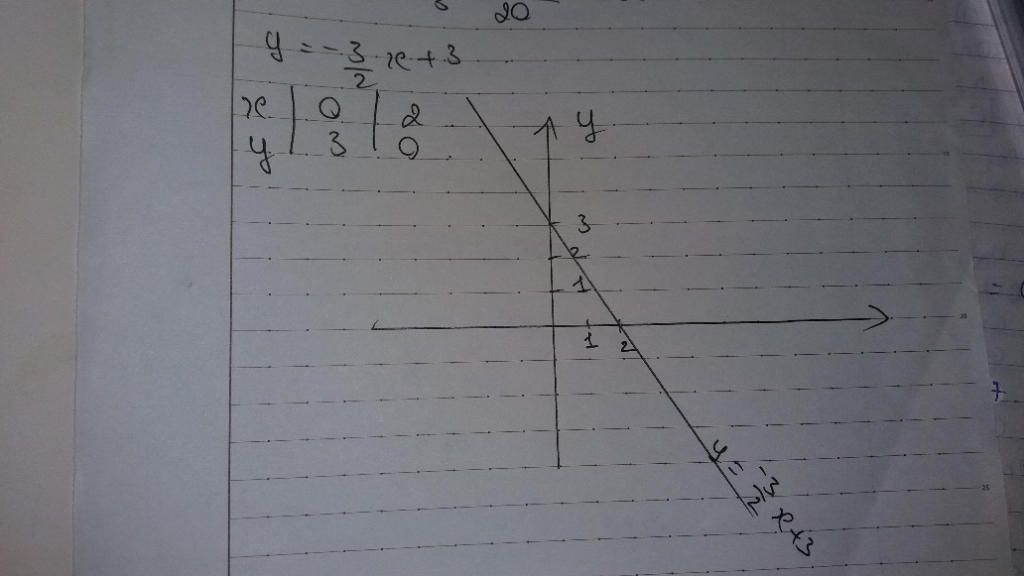 20
y = -3/2 x + 3
x | 0 | 2
y | 3 | 0
y
3
2
1
1 2
y = -3/2 x + 3
= 
7